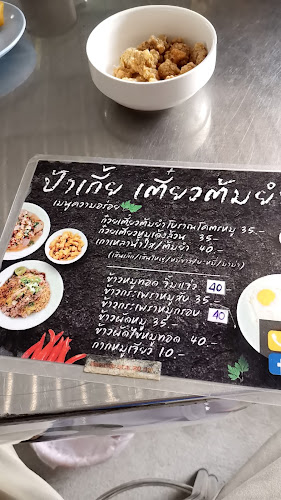 ป้าเกี้ย เตี๋ยวต้มยำ
เมนูความอร่อย
ก๋วยเตี๋ยวต้มยำโบราณโคตรหมู 35.-
ก๋วยเตี๋ยวหมูเด้งล้วน 35.-
เกาเหลาน้ำใส/ต้มยำ 40.-
ข้าวหมูทอด จิ้มแจ่ว 40
ข้าวกระเพราหมูสับ 35.-
ข้าวกระเพราหมูกรอบ 40
ข้าวผัดหมู 35.-
ข้าวผัดไข่หมูทอด 40.-
กากหมูเจียว 10.-